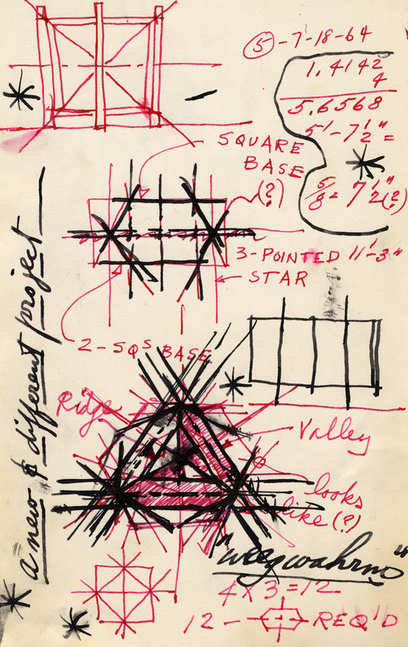 ⑤-7-18-64
1.4142
4
5.6568
5'-7½"=
5/8=7½"(?)
SQUARE
BASE
(?)
3-POINTED 11'-3"
STAR
2-SQS BASE
a new & different project
Ridge
Valley
looks
like (?)
"weegwahrno"
4X3=12
12- REQ'D